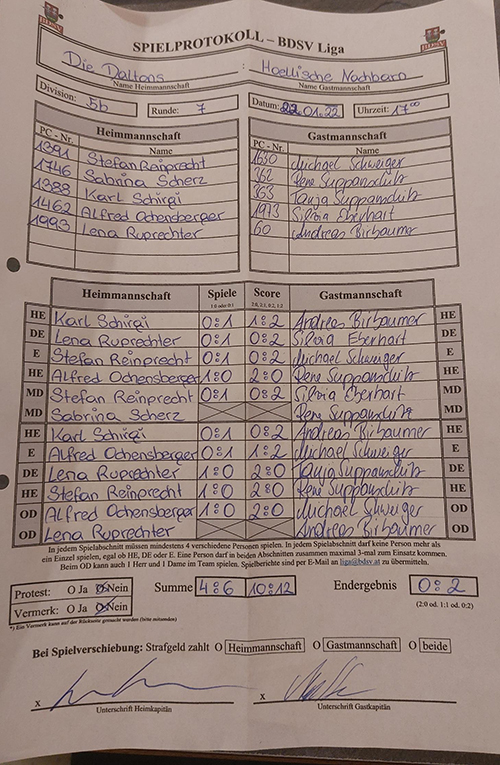 BDSV
BDSV
SPIELPROTOKOLL – BDSV Liga
Die Daltons : Hoellische Nachbarn
Name Heimmannschaft Name Gastmannschaft
Division: 5b Runde: 7 Datum: 22.01.22 Uhrzeit: 17 00
Heimmannschaft Gastmannschaft
PC - Nr. Name PC - Nr. Name
1391 Stefan Reinprecht 1630 Michael Schweiger
1746 Sabrina Scherz 362 Rene Suppanschitz
1388 Karl Schirgi 363 Tanja Suppanschitz
1462 Alfred Ochensberger 1973 Silvia Eberhart
1993 Lena Ruprechter 60 Andreas Birbaumer
Heimmannschaft Spiele Score Gastmannschaft
1:0 oder 0:1 2:0, 2:1, 0:2, 1:2
HE Karl Schirgi 0:1 1:2 Andreas Birbaumer HE
DE Lena Ruprechter 0:1 0:2 Silvia Eberhart DE
E Stefan Reinprecht 0:1 0:2 Michael Schweiger E
HE Alfred Ochensberger 1:0 2:0 Rene Suppanschitz HE
MD Stefan Reinprecht 0:1 0:2 Silvia Eberhart MD
MD Sabrina Scherz Rene Suppanschitz MD
HE Karl Schirgi 0:1 0:2 Andreas Birbaumer HE
E Alfred Ochensberger 0:1 1:2 Michael Schweiger E
DE Lena Ruprechter 1:0 2:0 Tanja Suppanschitz DE
HE Stefan Reinprecht 1:0 2:0 Rene Suppanschitz HE
OD Alfred Ochensberger 1:0 2:0 Michael Schweiger OD
OD Lena Ruprechter Andreas Birbaumer OD
In jedem Spielabschnitt müssen mindestens 4 verschiedene Personen spielen. In jedem Spielabschnitt darf keine Person mehr als
ein Einzel spielen, egal ob HE, DE oder E. Eine Person darf in beiden Abschnitten zusammen maximal 3-mal zum Einsatz kommen.
Beim OD kann auch 1 Herr und 1 Dame im Team spielen. Spielberichte sind per E-Mail an liga@bdsv.at zu übermitteln.
Protest: O Ja O Nein Summe 4:6 10:12 Endergebnis 0:2
Vermerk: O Ja O Nein (2:0 od. 1:1 od. 0:2)
*) Ein Vermerk kann auf der Rückseite gemacht werden (bitte mitsenden)
Bei Spielverschiebung: Strafgeld zahlt O Heimmannschaft O Gastmannschaft O beide
x x
Unterschrift Heimkapitän Unterschrift Gastkapitän